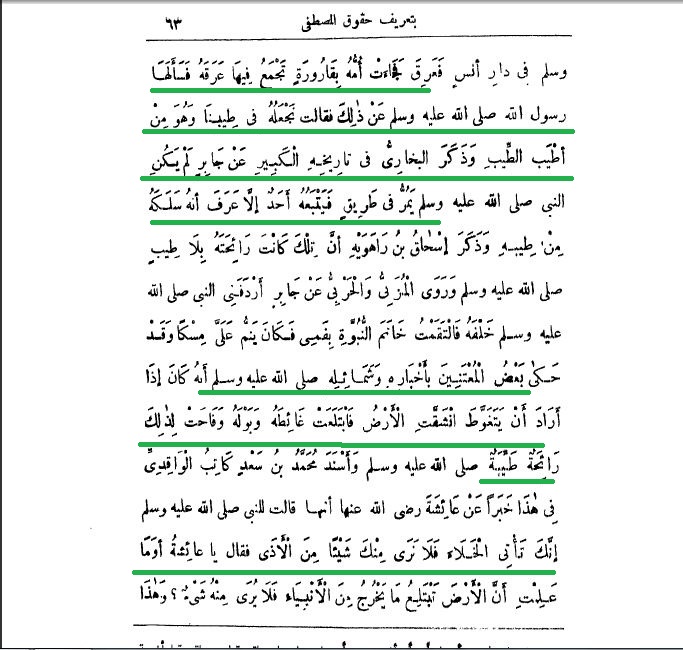 بتعريف حقوق المصطفى ٦٣
وسلم فى دارِ أنسٍ فَعَرِقَ فَجَاءَتْ أُمُّهُ بِقَارُورَةٍ تَجْمَعُ فِيهَا عَرَقَهُ فَسَأَلَهَا
رسول اللّه صلى اللّه عليه وسلم عَنْ ذٰلِكَ فقالت نَجْعَلُهُ فى طِيبِنَا وَهُوَ مِنْ
أطْيَبِ الطِّيبِ وَذَكَرَ البخارىُّ فى تاريخِهِ الْكَبِيرِ عَنْ جَابِرٍ لَمْ يَكُنِ
النبى صلى اللّه عليه وسلم يَمُرُّ فى طَرِيقٍ فَيَتْبَعُهُ أَحَدٌ إلَّا عَرَفَ أنهُ سَلَكَهُ
مِنْ طِيبِهِ وَذَكَرَ إسْحَاقُ بنُ رَاهَوَيْهِ أنَّ تِلْكَ كانَتْ رَائِحَتَهُ بِلَا طِيبٍ
صلى اللّه عليه وسلم وَرَوَى الْمُزَنِىُّ وَالْحَرْبِىُّ عَنْ جَابِرٍ أَرْدَفَنِى النبى صلى اللّه
عليه وسلم خَلْفَهُ فَالْتَقَمْتُ خَاتَمَ النُّبُوَّةِ بِفَمِى فَكانَ يَنِمُّ عَلَىَّ مِسْكًا وَقَدْ
حَكَى بَعْضُ الْمُعْتَنِينَ بِأَخْبَارِهِ وَشَمَائِلِهِ صلى اللّه عليه وسلم أنهُ كانَ إذَا
أرَادَ أَنْ يَتَغَوَّطَ انْشَقَّتِ الْأَرْضُ فَابْتَلَعَتْ غَائِطَهُ وَبَوْلَهُ وَفَاحَتْ لِذٰلِكَ
رَائِحَةٌ طَيِّبَةٌ صلى اللّه عليه وسلم وَأَسْنَدَ مُحَمَّدُ بنُ سَعْدٍ كَاتِبُ الْوَاقِدِىِّ
فى هٰذَا خَبَرًا عَنْ عَائِشَةَ رضى اللّه عنها أنها قالت للنبى صلى اللّه عليه وسلم
إنَّكَ تَأْتِى الْخَلَاءَ فَلَا نَرَى مِنْكَ شَيْئًا مِنَ الْأَذَى فقال يا عائِشَةُ أوَمَا
عَلِمْتِ أنَّ الْأَرْضَ تَبْتَلِعُ مَا يَخْرُجُ مِنَ الْأَنْبِيَاءِ فَلَا يُرَى مِنْهُ شَىْءٌ ؟ وَهٰذَا